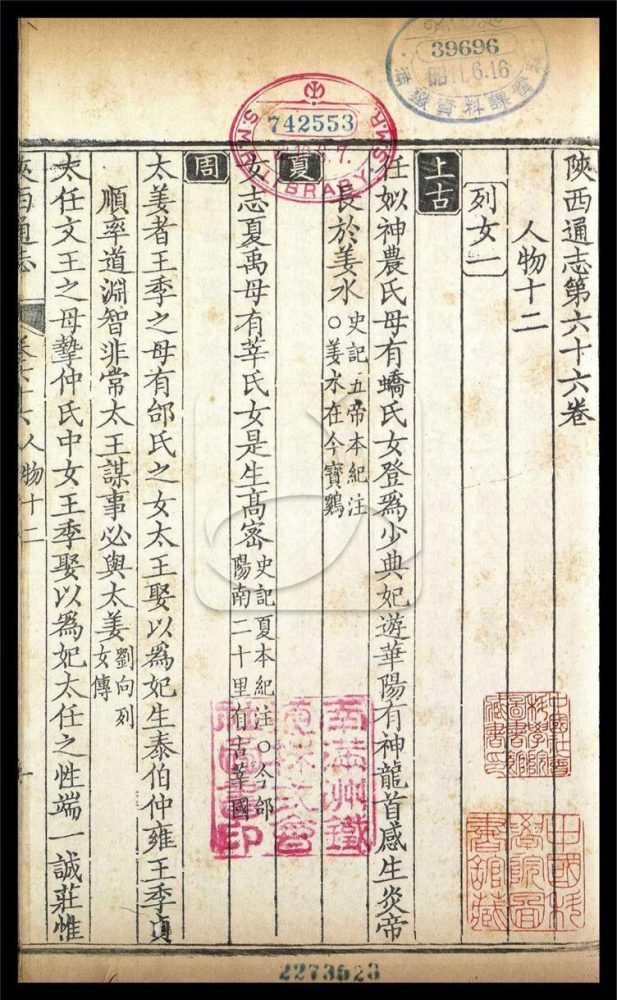 39696
742553
S.M.R. LIBRARY
陝西通志第六十六卷
人物十二
列女一
上古
任姒神農氏母有蟜氏女登爲少典妃遊華陽有神龍首感生炎帝
長於姜水史記五帝本紀注
○姜水在今寶鷄
夏
女志夏禹母有莘氏女是生髙密史記夏本紀注○今郃
陽南二十里有古莘國
周
太姜者王季之母有邰氏之女太王娶以爲妃生泰伯仲雍王季貞
順率道淵智非常太王謀事必與太姜劉向列
女傳
太任文王之母摯仲氏中女王季娶以爲妃太任之性端一誠莊惟
陝西通志 卷六十六 人物十二
中國科學院圖書館藏